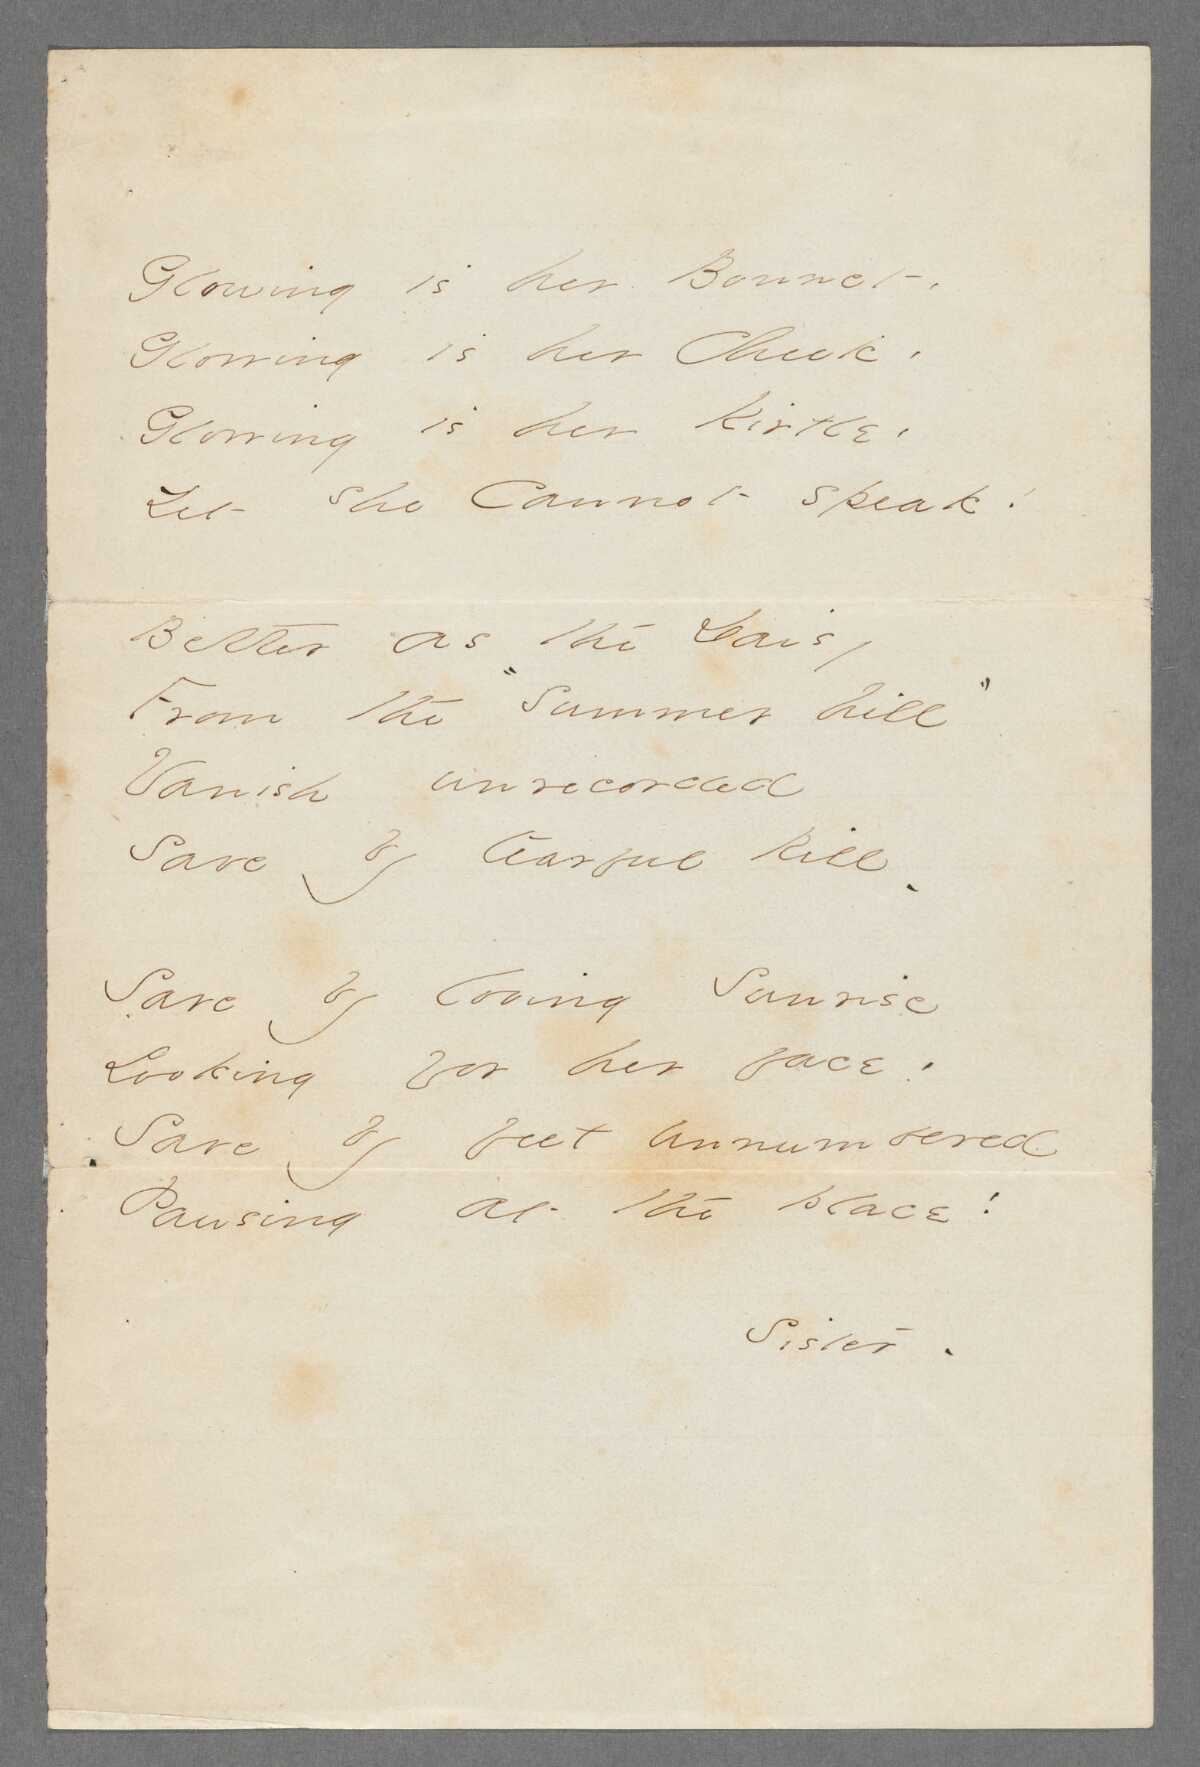 Glowing is her Bonnet.
Glowing is her Cheek.
Glowing is her Kirtle.
Yet she Cannot speak!
Better as the Daisy
From the "Summer hill"
Vanish unrecorded
Save by tearful rill.
Save by loving Sunrise
Looking for her face.
Save by feet unnumbered
Pausing at the place!
Sister.